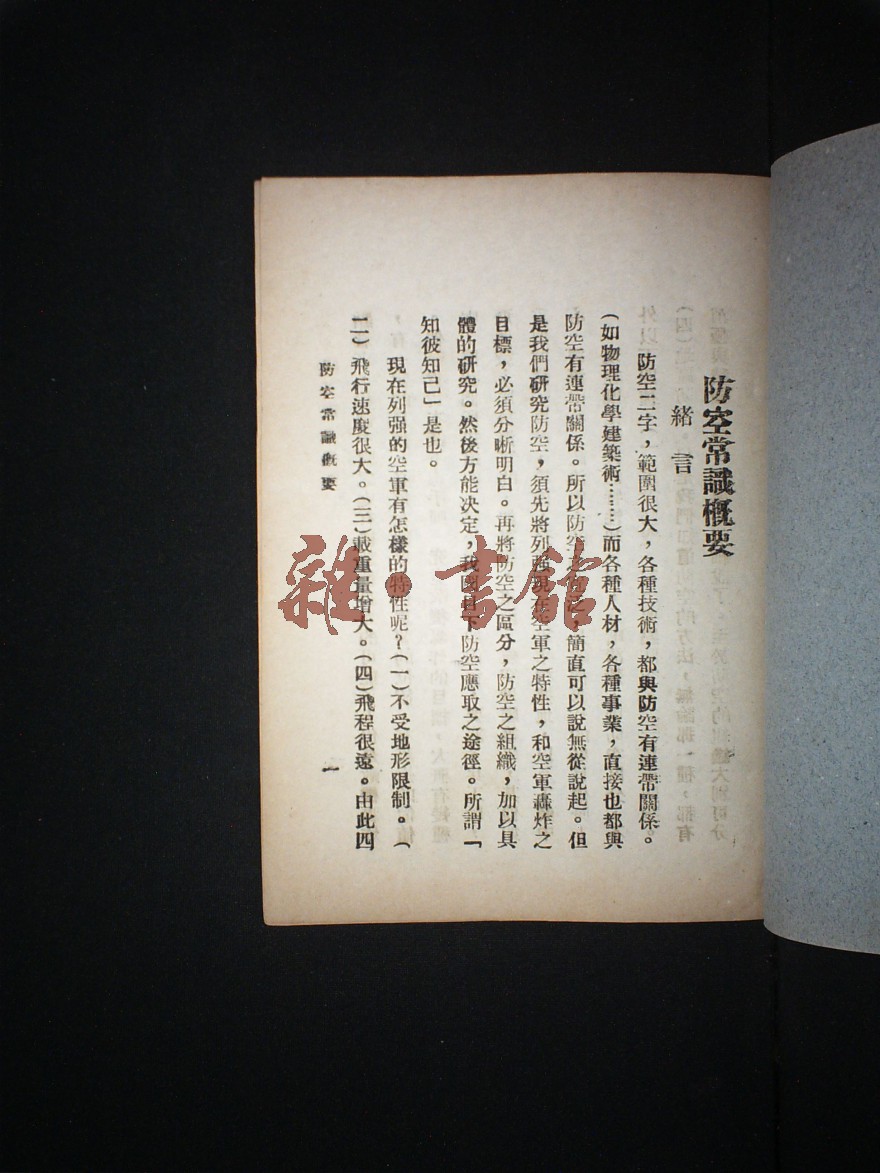 防空常識概要
緒言
防空二字，範圍很大，各種技術，都與防空有連帶關係。
（如物理化學建築術………）而各種人材，各種事業，直接也都與
防空有連帶關係。所以防空之，簡直可以說無從說起。但
是我們研究防空，須先將列強現在空軍之特性，和空軍轟炸之
目標，必須分晰明白。再將防空之區分，防空之組織，加以具
體的研究。然後方能决定，我國目下防空應取之途徑。所謂「
知彼知己」是也。
現在列强的空軍有怎樣的特性呢？（一）不受地形限制。（
二）飛行速度很大。（三）載重量增大。（四）飛程很遠。由此四
防空常識概要
一
雜·書館